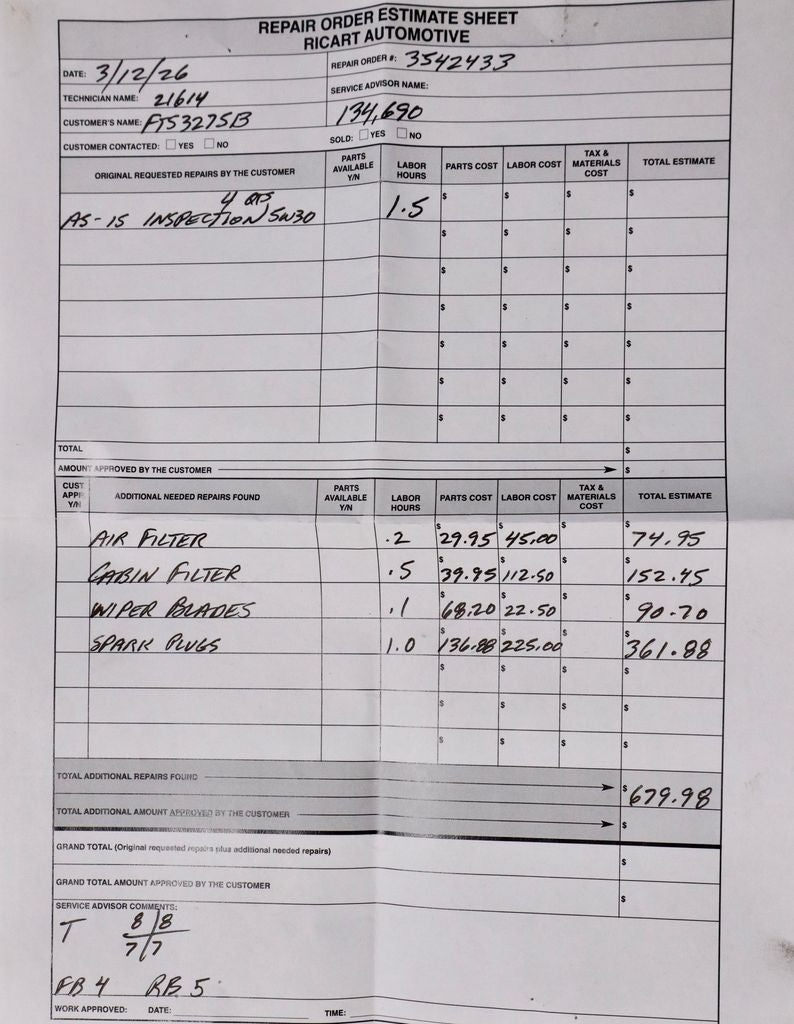 REPAIR ORDER ESTIMATE SHEET
RICART AUTOMOTIVE
DATE: 3/12/26
REPAIR ORDER #: 3542433
TECHNICIAN NAME: 21614
SERVICE ADVISOR NAME:
CUSTOMER'S NAME: FTS3275B
134,690
CUSTOMER CONTACTED: YES NO
SOLD: YES NO
ORIGINAL REQUESTED REPAIRS BY THE CUSTOMER PARTS AVAILABLE Y/N LABOR HOURS PARTS COST LABOR COST TAX & MATERIALS COST TOTAL ESTIMATE
4 QTS
AS-IS INSPECTION 5W30 1.5 $ $ $ $
$ $ $ $
$ $ $ $
$ $ $ $
$ $ $ $
$ $ $ $
$ $ $ $
TOTAL $
AMOUNT APPROVED BY THE CUSTOMER $
CUST APPR Y/N ADDITIONAL NEEDED REPAIRS FOUND PARTS AVAILABLE Y/N LABOR HOURS PARTS COST LABOR COST TAX & MATERIALS COST TOTAL ESTIMATE
AIR FILTER .2 $29.95 $45.00 $ $74.95
CABIN FILTER .5 $39.95 $112.50 $ $152.45
WIPER BLADES .1 $68.20 $22.50 $ $90.70
SPARK PLUGS 1.0 $136.88 $225.00 $ $361.88
$ $ $ $
$ $ $ $
$ $ $ $
TOTAL ADDITIONAL REPAIRS FOUND $679.98
TOTAL ADDITIONAL AMOUNT APPROVED BY THE CUSTOMER $
GRAND TOTAL (Original requested repairs plus additional needed repairs) $
GRAND TOTAL AMOUNT APPROVED BY THE CUSTOMER $
SERVICE ADVISOR COMMENTS:
T 8 8
7 7
FB 4 RB 5
WORK APPROVED: DATE: TIME: